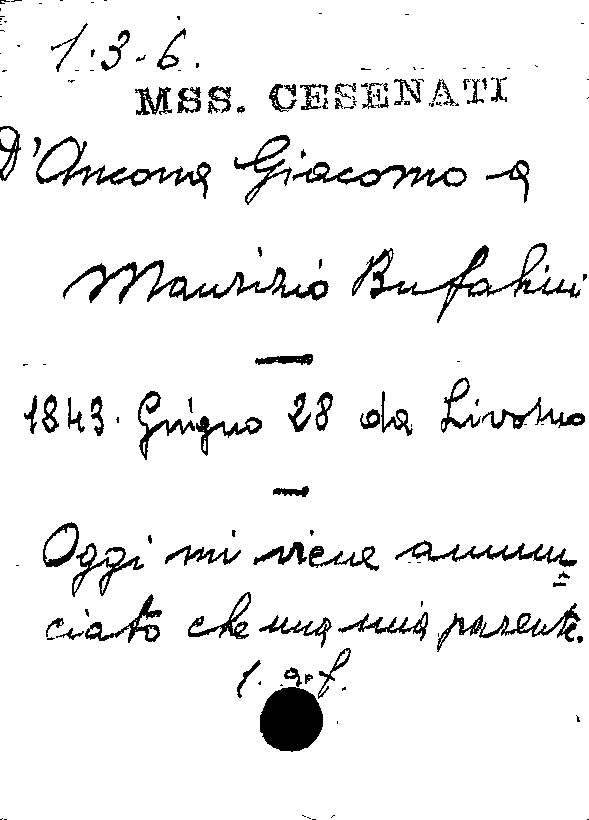 1.3-6.
MSS. CESENATI
D'Ancona Giacomo a
Maurizio Bufalini
1843. Giugno 28 da Livorno
Oggi mi viene annun=
ciato che una mia parente.
1. a.f.